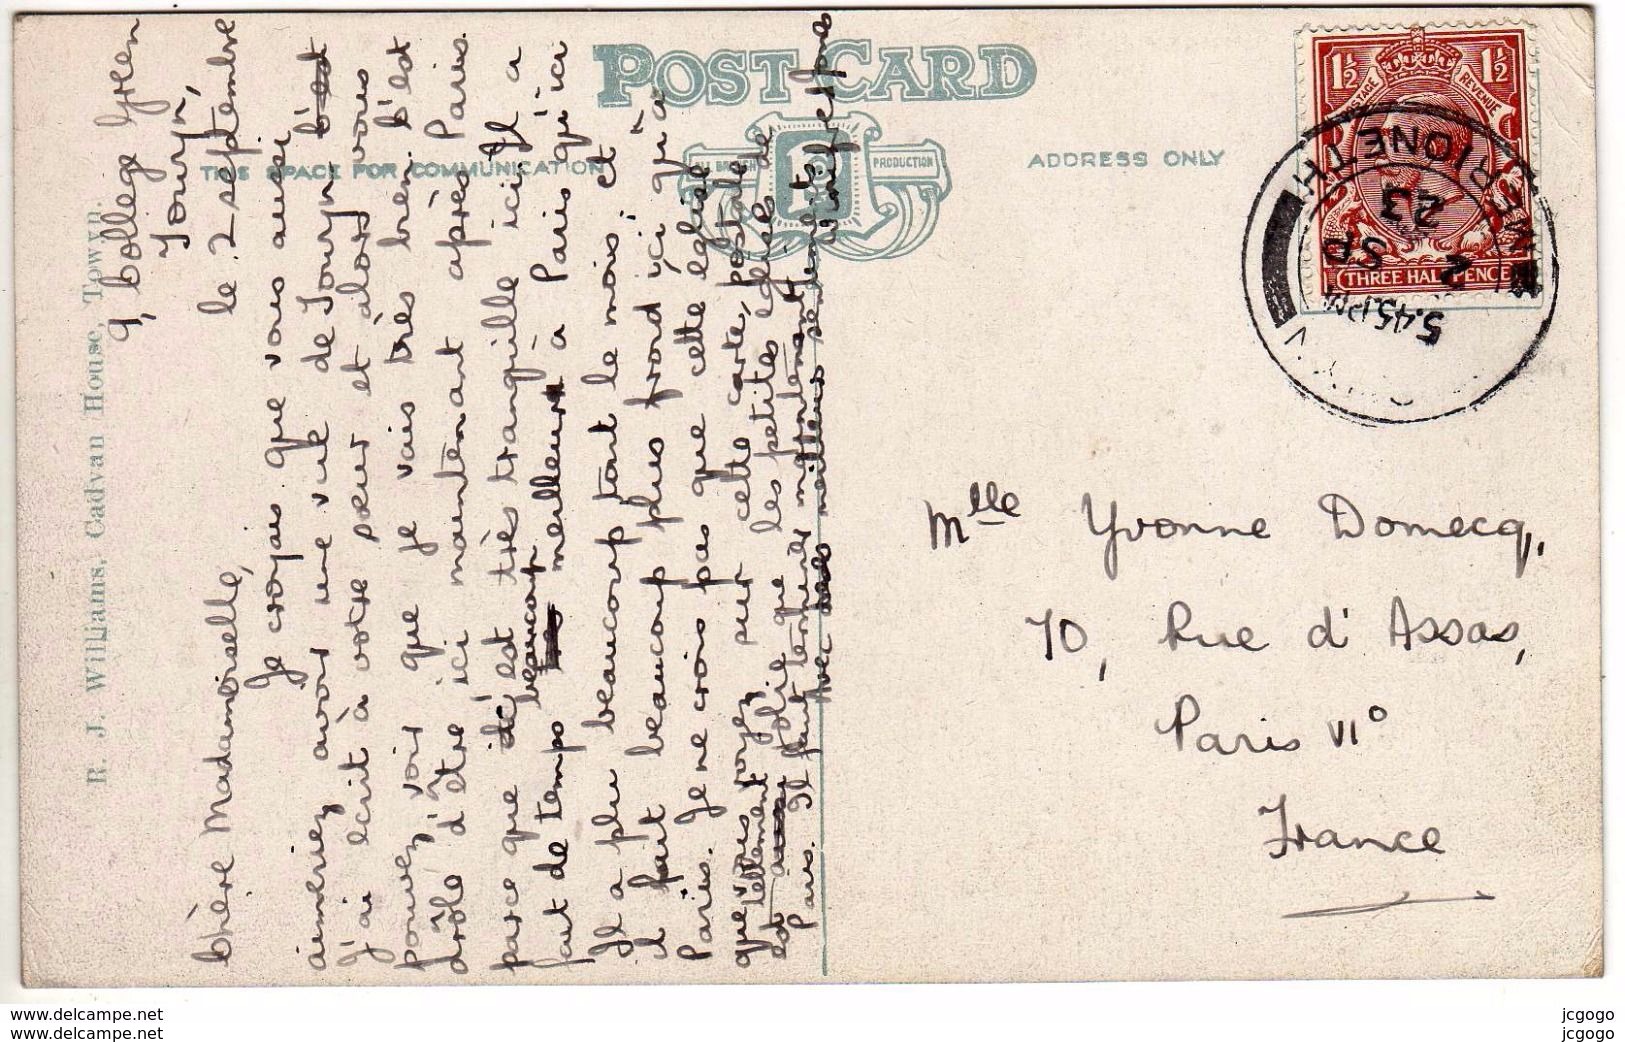 POST CARD
THIS SPACE FOR COMMUNICATION
ALL BRITISH PRODUCTION
ADDRESS ONLY
R. J. Williams, Cadvan House, Towyn.
9, College Green
Towyn,
le 2 septembre
Chère Mademoiselle,
Je croyais que vous aussi
aimeriez avoir une vue de Towyn
J'ai écrit à votre sœur et alors vous
pouvez voir que je vais très bien. C'est
drôle d'être ici maintenant après Paris
parce que c'est très tranquille ici. Il a
fait de temps beaucoup meilleur à Paris qu'ici
Il a plu beaucoup tout le mois et
il fait beaucoup plus froid ici qu'à
Paris. Je ne crois pas que cette église
que vous voyez sur cette carte postale
est tellement jolie que les petites églises de
Paris. Il faut terminer maintenant
Avec meilleurs sentiments
Winifred Jones
Mlle Yvonne Domecq,
70, Rue d'Assas,
Paris VI°
France
1½ 1½
POSTAGE REVENUE
THREE HALF PENCE
MERIONETH
5.45 PM
2 SP
23
www.delcampe.net
www.delcampe.net
jcgogo
jcgogo